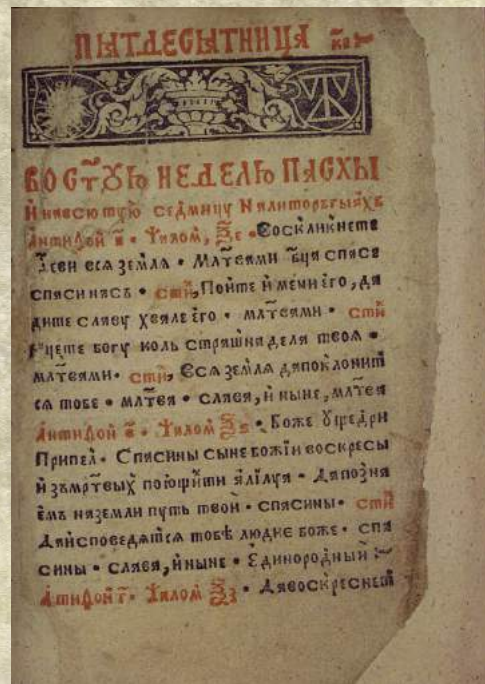 ПѦТДЕСѦТНИЦА
ВО СТ҃ꙊЮ НЕДЕЛЮ ПАСХЫ
Й на всю тꙋю седмицꙋ На литоргыяхъ
Антифон а҃ · Ѱалом, ѯ҃е · Воскликнете
гвеи вся земля · Млт҃вами бц҃а спаса
спаси насъ · стй, Пойте й мени его, да
дите славꙋ хвале его · млт҃вами · стй
Рцете богꙋ коль страшна дела твоя ·
млт҃вами · стй, Вся земля да поклонит
ся тобе · млт҃ва · слава, й ныне, млт҃ва
Антифон в҃ · Ѱалом ѯ҃ѕ · Боже ꙋщедри
Припел · Спаси ны сыне божїи воскресы
й зъмрт҃вых поющйти алілꙋя · Да позна
емъ на земли пꙋть твой · спаси ны · стй
Да йсповедятся тобѣ людие боже · спа
си ны · слава, й ныне · Единородный
Антифон г҃ · Ѱалом ѯ҃з · Да воскреснет